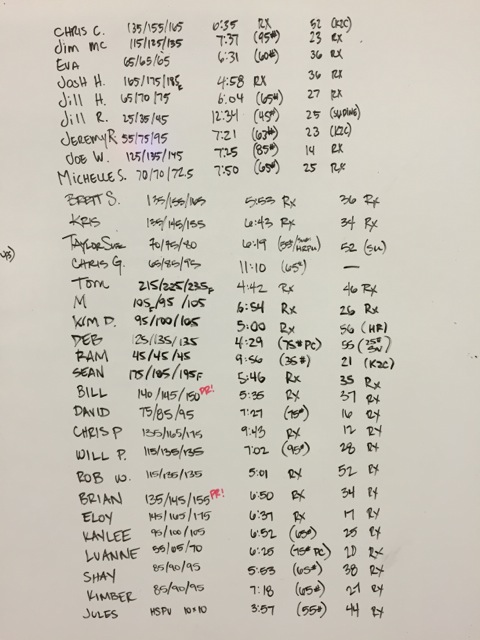 CHRIS C. 135/155/165 6:35 RX 52 (K2C)
Jim Mc 115/125/135 7:37 (95#) 23 RX
EVA 65/65/65 6:31 (60#) 36 RX
JOSH H. 165/175/185F 4:58 RX 36 RX
Jill H. 65/70/75 6:04 (65#) 27 RX
Jill R. 25/35/45 12:34 (45#) 25 (SLIDING)
JEREMY R. 55/75/95 7:21 (63#) 23 (K2C)
JOE W. 125/135/145 7:25 (85#) 14 RX
MICHELLE S. 70/70/72.5 7:50 (65#) 25 RX
BRETT S. 135/155/165 5:53 Rx 36 Rx
KRIS 135/145/155 6:43 RX 34 RX
70/75/80 6:19 52
CHRIS G. 65/85/95 11:10 (65#) —
TOM 215/225/235F 4:42 RX 46 RX
M 105F/95/105 6:54 RX 26 RX
KIM D. 95/100/105 5:00 Rx 56 (HR)
DEB 125/135/135 4:29 (75# PC) 55
RAM 45/45/45 9:56 (35#) 21 (K2C)
SEAN 175/185/195F 5:46 RX 35 RX
BILL 140/145/150 PR! 5:35 RX 37 RX
DAVID 75/85/95 7:27 (75#) 16 RX
CHRIS P 135/165/175 9:43 RX 12 RX
WILL P. 115/135/135 7:02 (95#) 28 RX
ROB W. 115/135/135 5:01 RX 52 RX
BRIAN 135/145/155 PR! 6:50 RX 34 RX
ELOY 145/165/175 6:37 RX 17 RX
KAYLEE 95/100/105 6:52 (65#) 25 RX
LUANNE 55/65/70 6:25 (75# PC) 20 RX
SHAY 85/90/95 5:53 (65#) 38 RX
KIMBER 85/90/95 7:18 (65#) 27 RX
JULES HSPU 10x10 3:57 (55#) 44 RX